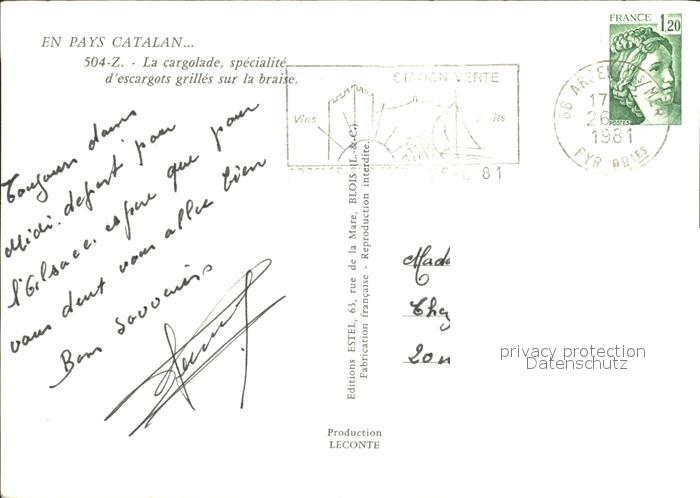 EN PAYS CATALAN...
504-Z. - La cargolade, spécialité
d'escargots grillés sur la braise.
Toujours dans
Midi. depart pour
l'Alsace. espere que pour
vous deux vous allez bien
Bons souvenirs
Editions ESTEL, 63, rue de la Mare, BLOIS (L.-&-C.)
Fabrication française - Reproduction interdite.
Production
LECONTE
STATION VERTE
Vins
81
FRANCE 1,20
POSTES
66 ARGELES S/ MER
17
26
1981
PYR. ORles
Made
Chez
20
privacy protection
Datenschutz